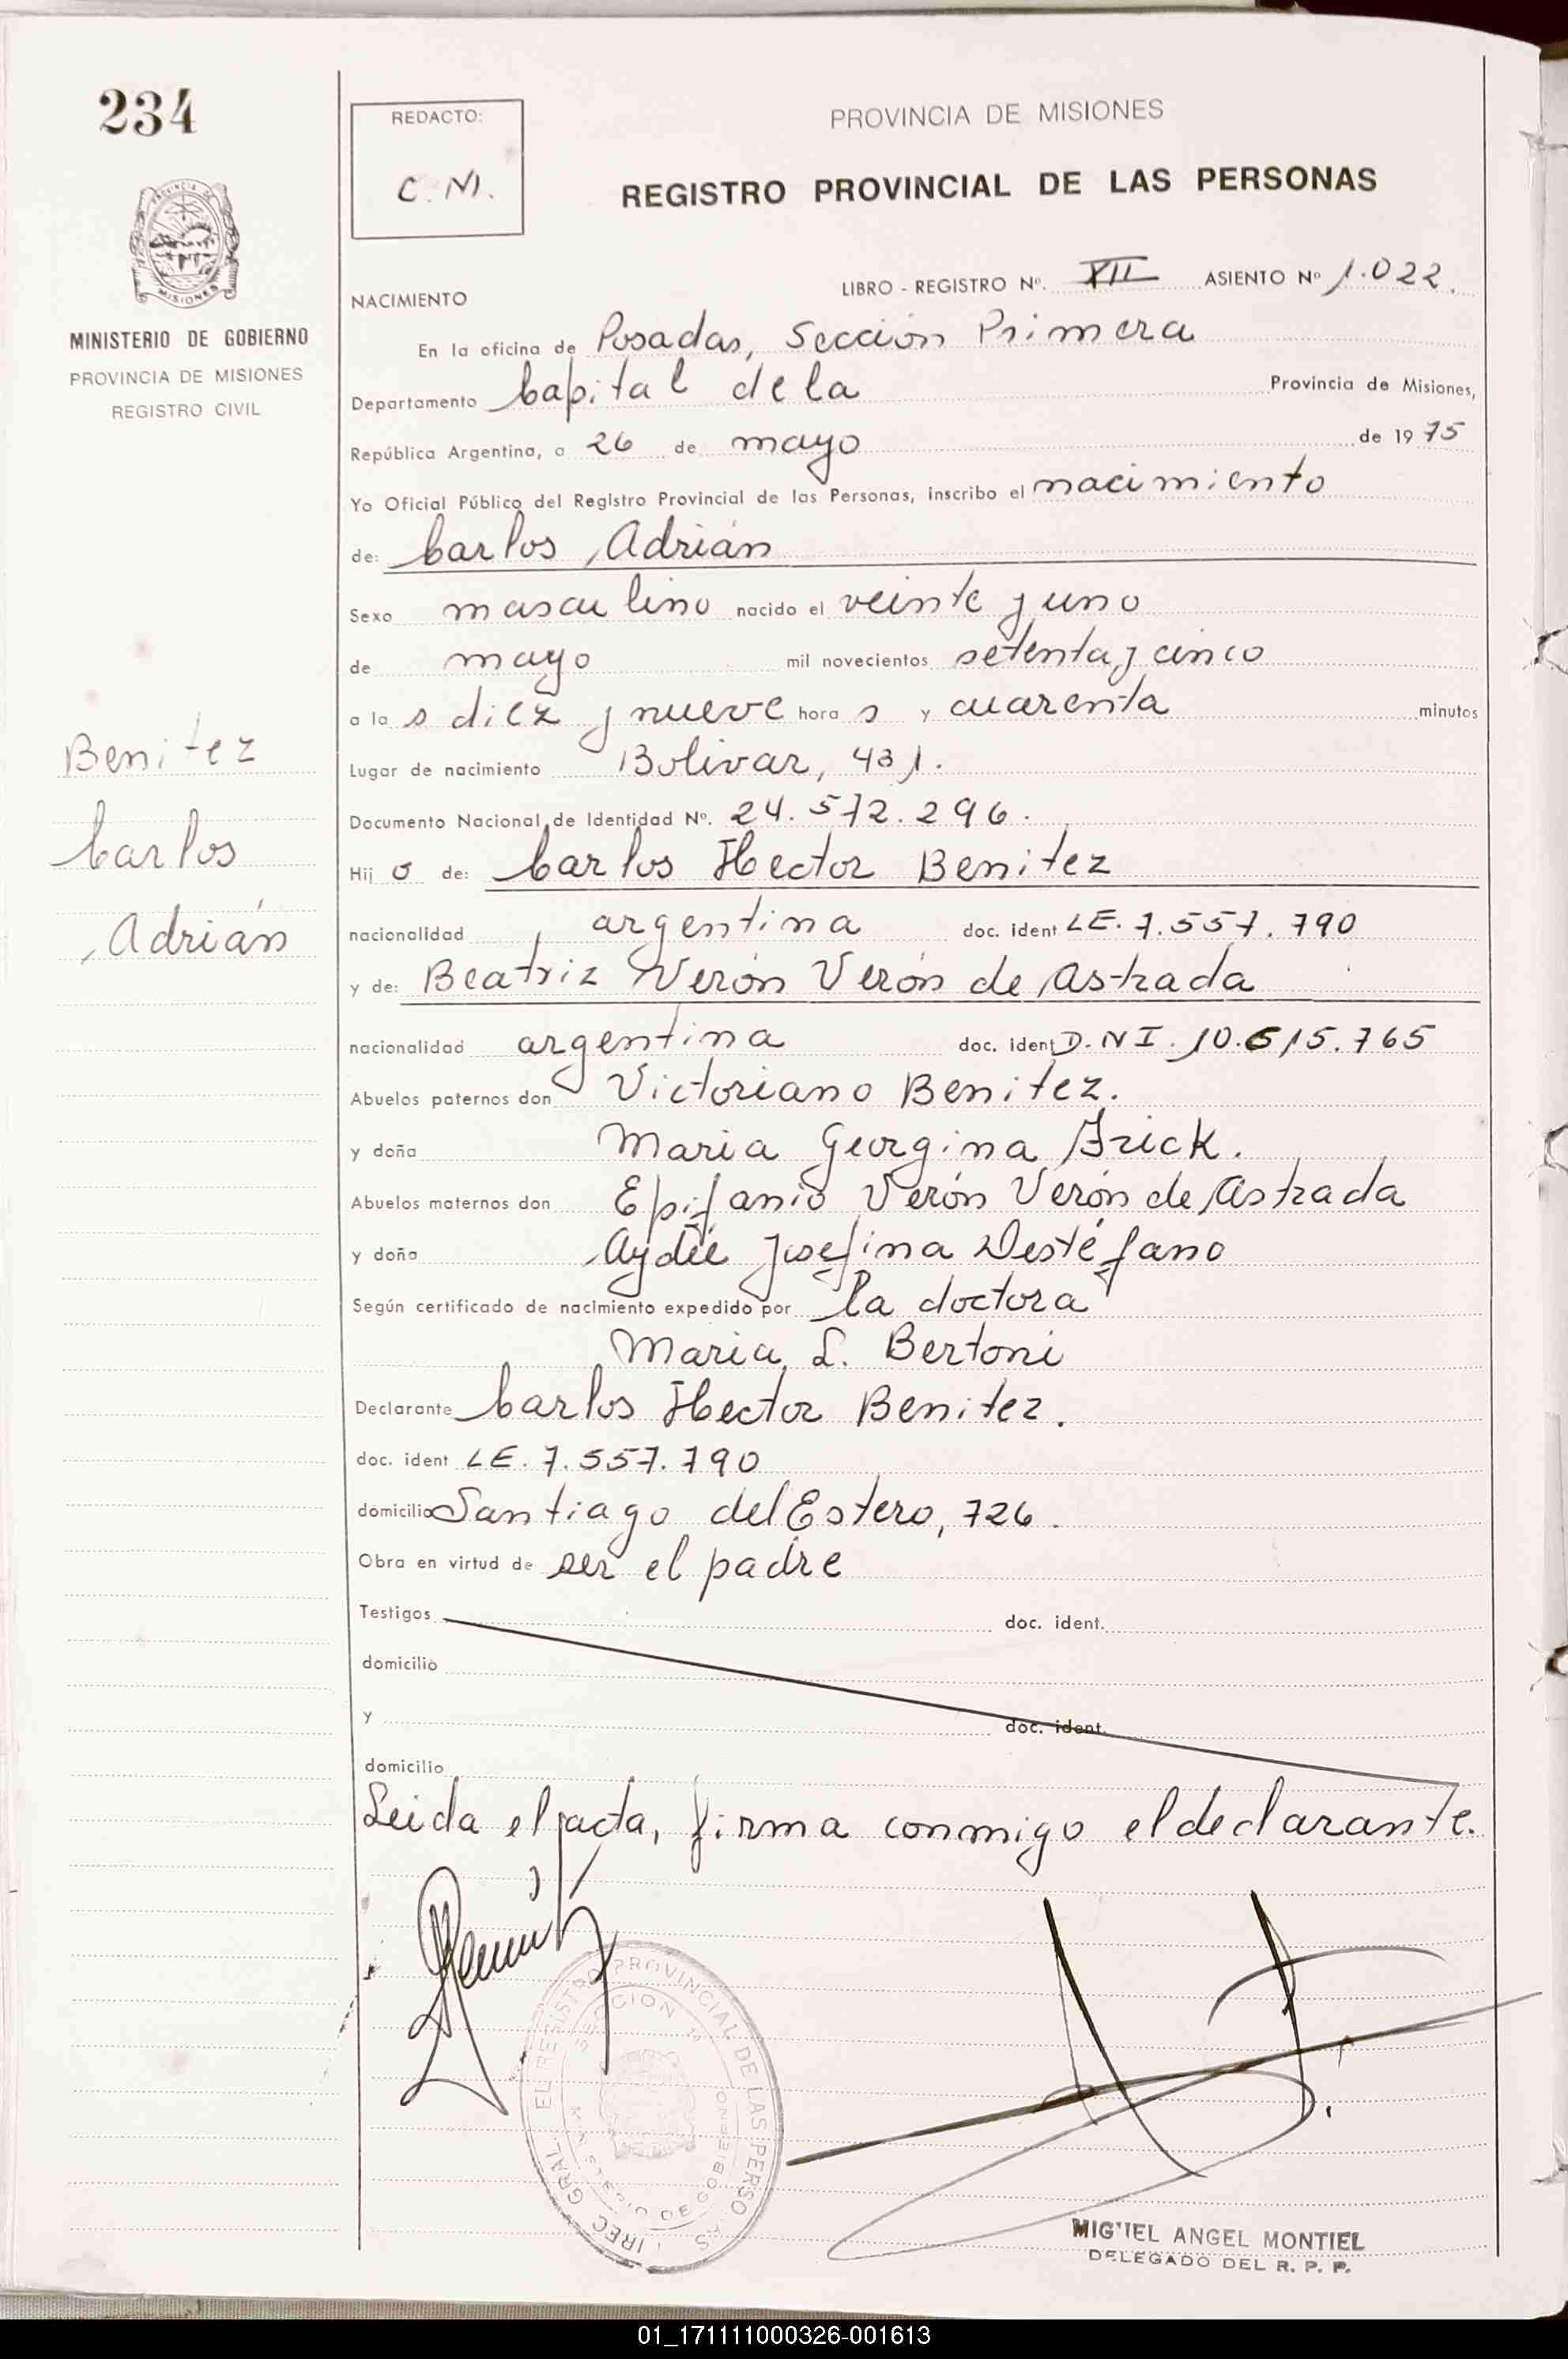 234
REDACTO:
C. M.
PROVINCIA DE MISIONES
REGISTRO PROVINCIAL DE LAS PERSONAS
MISIONES
MINISTERIO DE GOBIERNO
PROVINCIA DE MISIONES
REGISTRO CIVIL
NACIMIENTO
LIBRO - REGISTRO Nº. XII ASIENTO Nº 1.022.
En la oficina de Posadas, Sección Primera
Departamento Capital de la Provincia de Misiones,
República Argentina, a 26 de mayo de 1975
Yo Oficial Público del Registro Provincial de las Personas, inscribo el nacimiento
de: Carlos Adrián
Sexo masculino nacido el veinte y uno
de mayo mil novecientos setenta y cinco
a la s diez y nueve hora s y cuarenta minutos
Lugar de nacimiento Bolivar, 431.
Documento Nacional de Identidad Nº. 24.572.296.
Hij o de: Carlos Hector Benitez
nacionalidad argentina doc. ident LE. 7.557.790
y de: Beatriz Verón Verón de Astrada
nacionalidad argentina doc. ident D.NI. 10.615.765
Abuelos paternos don Victoriano Benitez.
y doña Maria Georgina Frick.
Abuelos maternos don Epifanio Verón Verón de Astrada
y doña Aydée Josefina Destéfano
Según certificado de nacimiento expedido por la doctora
Maria L. Bertoni
Declarante Carlos Hector Benitez.
doc. ident LE. 7.557.790
domicilio Santiago del Estero, 726.
Obra en virtud de ser el padre
Testigos doc. ident.
domicilio
y doc. ident.
domicilio
Leida el acta, firma conmigo el declarante.
Benitez
Carlos
Adrián
REGISTRO PROVINCIAL DE LAS PERSO
SECCION 1ª
MIGUEL ANGEL MONTIEL
DELEGADO DEL R. P. P.
01_171111000326-001613